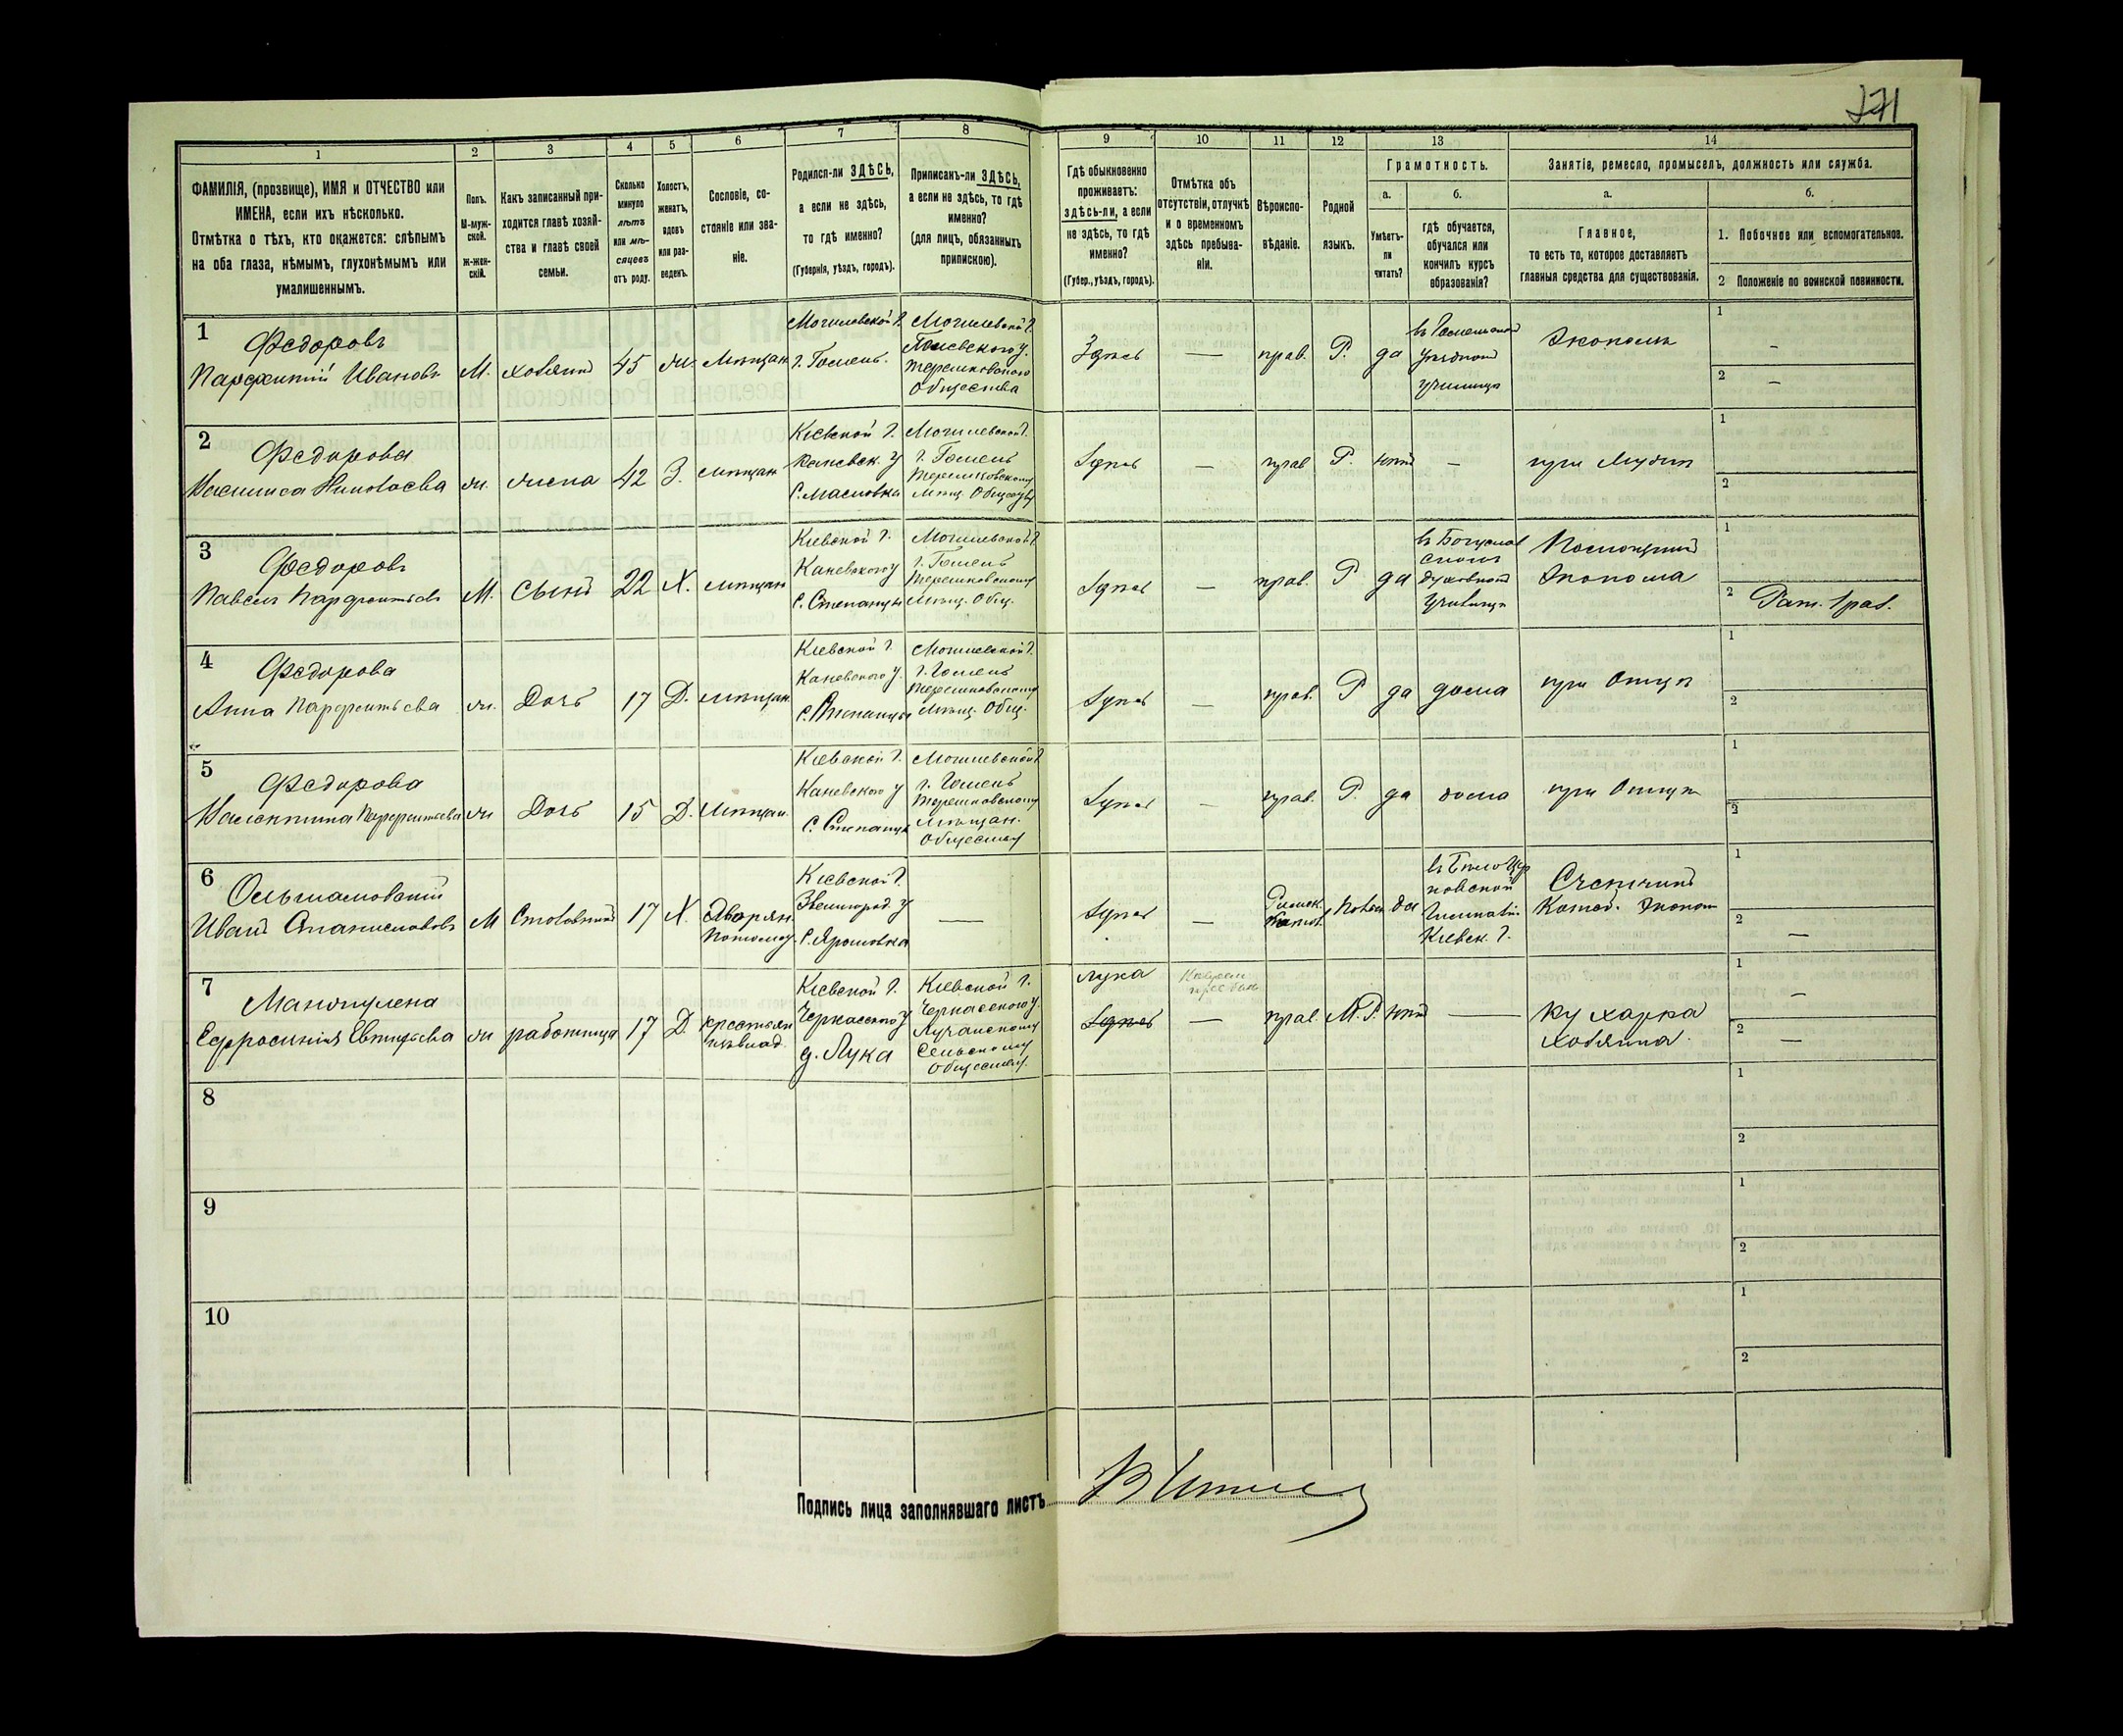 271
1
2
3
4
5
6
7
8
9
10
11
12
13
14
ФАМИЛІЯ, (прозвище), ИМЯ и ОТЧЕСТВО или
ИМЕНА, если ихъ нѣсколько.
Отмѣтка о тѣхъ, кто окажется: слѣпымъ
на оба глаза, нѣмымъ, глухонѣмымъ или
умалишеннымъ.
Полъ.
М-муж-
ской.
Ж-жен-
скій.
Какъ записанный при-
ходится главѣ хозяй-
ства и главѣ своей
семьи.
Сколько
минуло
лѣтъ
или мѣ-
сяцевъ
отъ роду.
Холостъ,
женатъ,
вдовъ
или раз-
веденъ.
Сословіе, со-
стояніе или зва-
ніе.
Родился-ли ЗДѢСЬ,
а если не здѣсь,
то гдѣ именно?
(Губернія, уѣздъ, городъ).
Приписанъ-ли ЗДѢСЬ,
а если не здѣсь, то гдѣ
именно?
(для лицъ, обязанныхъ
припискою).
Гдѣ обыкновенно
проживаетъ:
здѣсь-ли, а если
не здѣсь, то гдѣ
именно?
(Губер., уѣздъ, городъ).
Отмѣтка объ
отсутствіи, отлучкѣ
и о временномъ
здѣсь пребыва-
ніи.
Вѣроиспо-
вѣданіе.
Родной
языкъ.
Грамотность.
а.
Умѣетъ-
ли
читать?
б.
гдѣ обучается,
обучался или
кончилъ курсъ
образованія?
Занятія, ремесло, промыселъ, должность или служба.
а.
Главное,
то есть то, которое доставляетъ
главныя средства для существованія.
б.
1. Побочное или вспомогательное.
2 Положеніе по воинской повинности.
1
Федоровъ
Парфентій Ивановъ
М. хозяинъ 45 ж. мѣщан.
Могилевской г.
г. Гомель.
Могилевской г.
Терешковского
Общества
Здѣсь — прав. Р. да
въ Гомельском
уѣздном
училищѣ
Экономъ
1 –
2 –
2
Федорова
Василиса Николаева
ж. жена 42 З. мѣщан
Кіевской г.
Каневск. у
с. Масловка
Могилевской г.
г. Гомель
Терешковскому
мѣщ. Общеву
Здѣсь — прав Р. нѣтъ – при мужѣ
1
2
3
Федоровъ
Павелъ Парфентьевъ
М. Сынъ 22 Х. мѣщан
Кіевской г.
Каневского у
с. Степанцы
Могилевской г.
г. Гомель
Терешковскому
мѣщ. Общ.
Здѣсь – прав. Р да
въ Богуслав
ском
духовном
училищѣ
Помощникъ
Эконома
1
2 Рат. 1 раз.
4
Федорова
Анна Парфентьева
ж. Дочь 17 Д. мѣщан.
Кіевской г.
Каневского у.
с. Степанцы
Могилевской г.
г. Гомель
Терешковскому
мѣщ. Общ.
Здѣсь – прав. Р да дома при Отцѣ
1
2
5
Федорова
Валентина Парфентьева
ж Дочь 15 Д. мѣщан.
Кіевской г.
Каневского у
с. Степанцы
Могилевской г
г. Гомель
Терешковскому
мѣщан.
Обществу
Здѣсь – прав. Р. да дома при Отцѣ
1
2
6
Ольшамовскій
Иванъ Станиславовъ
М Столовникъ 17 Х. Дворян.
Потомств.
Кіевской г.
Звенигород. у
с. Ярошовка
—
Здѣсь – Римск.
Катол. Польск да
въ Бѣлоцер
ковской
Гимназіи.
Кіевск. г.
Счетчикъ
1
2 –
7
Ефросинія Евтифьева
ж работница 17 Д. крестьян
Кіевской г.
Черкасского у
д. Лука
Кіевской г.
Черкасского у.
Лучанскому
Сельскому
Обществу.
Лука
Здѣсь
– прав. М.Р. нѣтъ — кухарка
хозяина.
1 –
2 –
8
1
2
9
1
2
10
1
2
Подпись лица заполнявшаго листъ